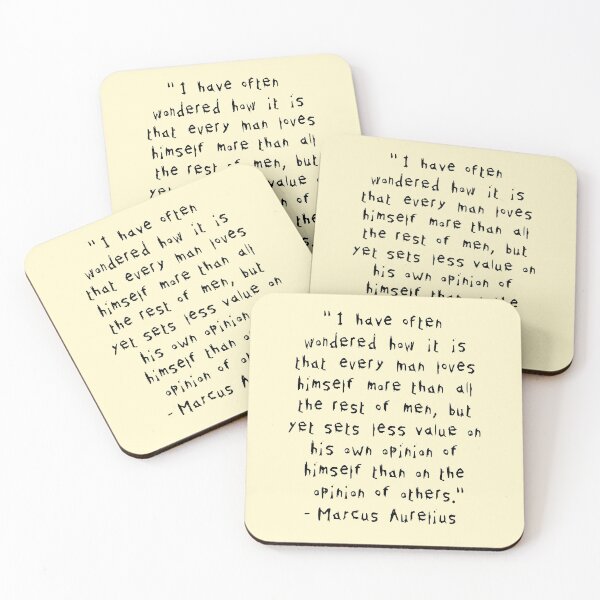 "I have often
wondered how it is
that every man loves
himself more than all
the rest of men, but
yet sets less value
of
the
"I have often
wondered how it is
that every man loves
himself more than all
the rest of men, but
yet sets less value on
his own opinion of
himself
the
"I have often
wondered how it is
that every man loves
himself more than all
the rest of men, but
yet sets less value on
his own opinion
himself than
opinion of
- Marcus
"I have often
wondered how it is
that every man loves
himself more than all
the rest of men, but
yet sets less value on
his own opinion of
himself than on the
opinion of others."
- Marcus Aurelius